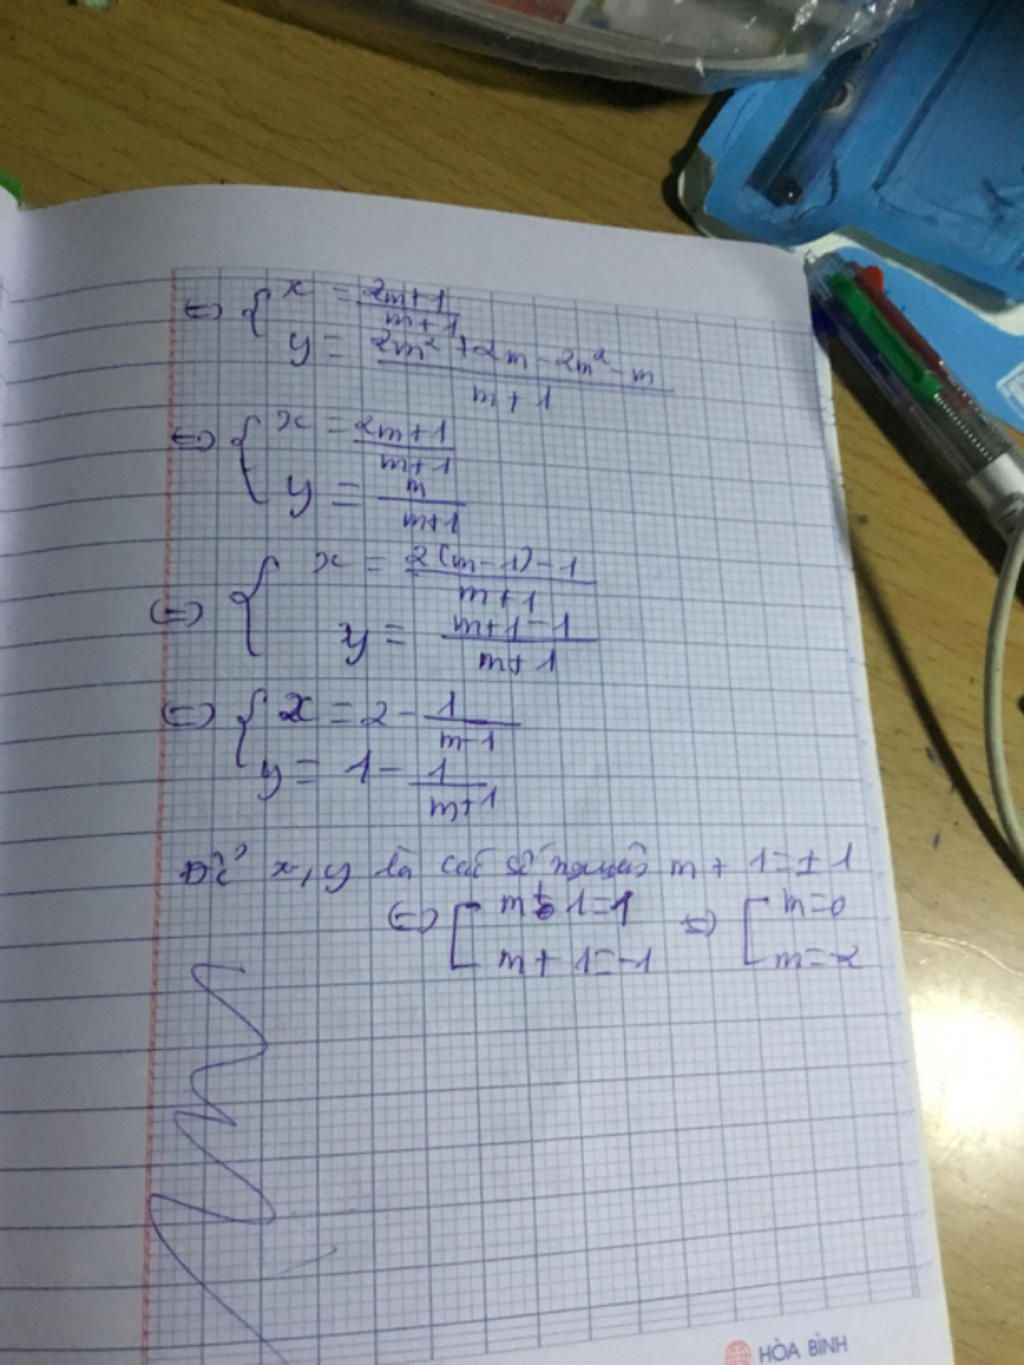 ⇔ { x = (2m+1)/(m+1)
y = (2m² + 2m - 2m² - m)/(m+1)
⇔ { x = (2m+1)/(m+1)
y = m/(m+1)
⇔ { x = (2(m-1)-1)/(m+1)
y = (m+1-1)/(m+1)
⇔ { x = 2 - 1/(m-1)
y = 1 - 1/(m+1)
Để x, y là các số nguyên m + 1 = ±1
⇔ [ m + 1 = 1 ⇔ [ m = 0
m + 1 = -1 m = -2
HÒA BÌNH